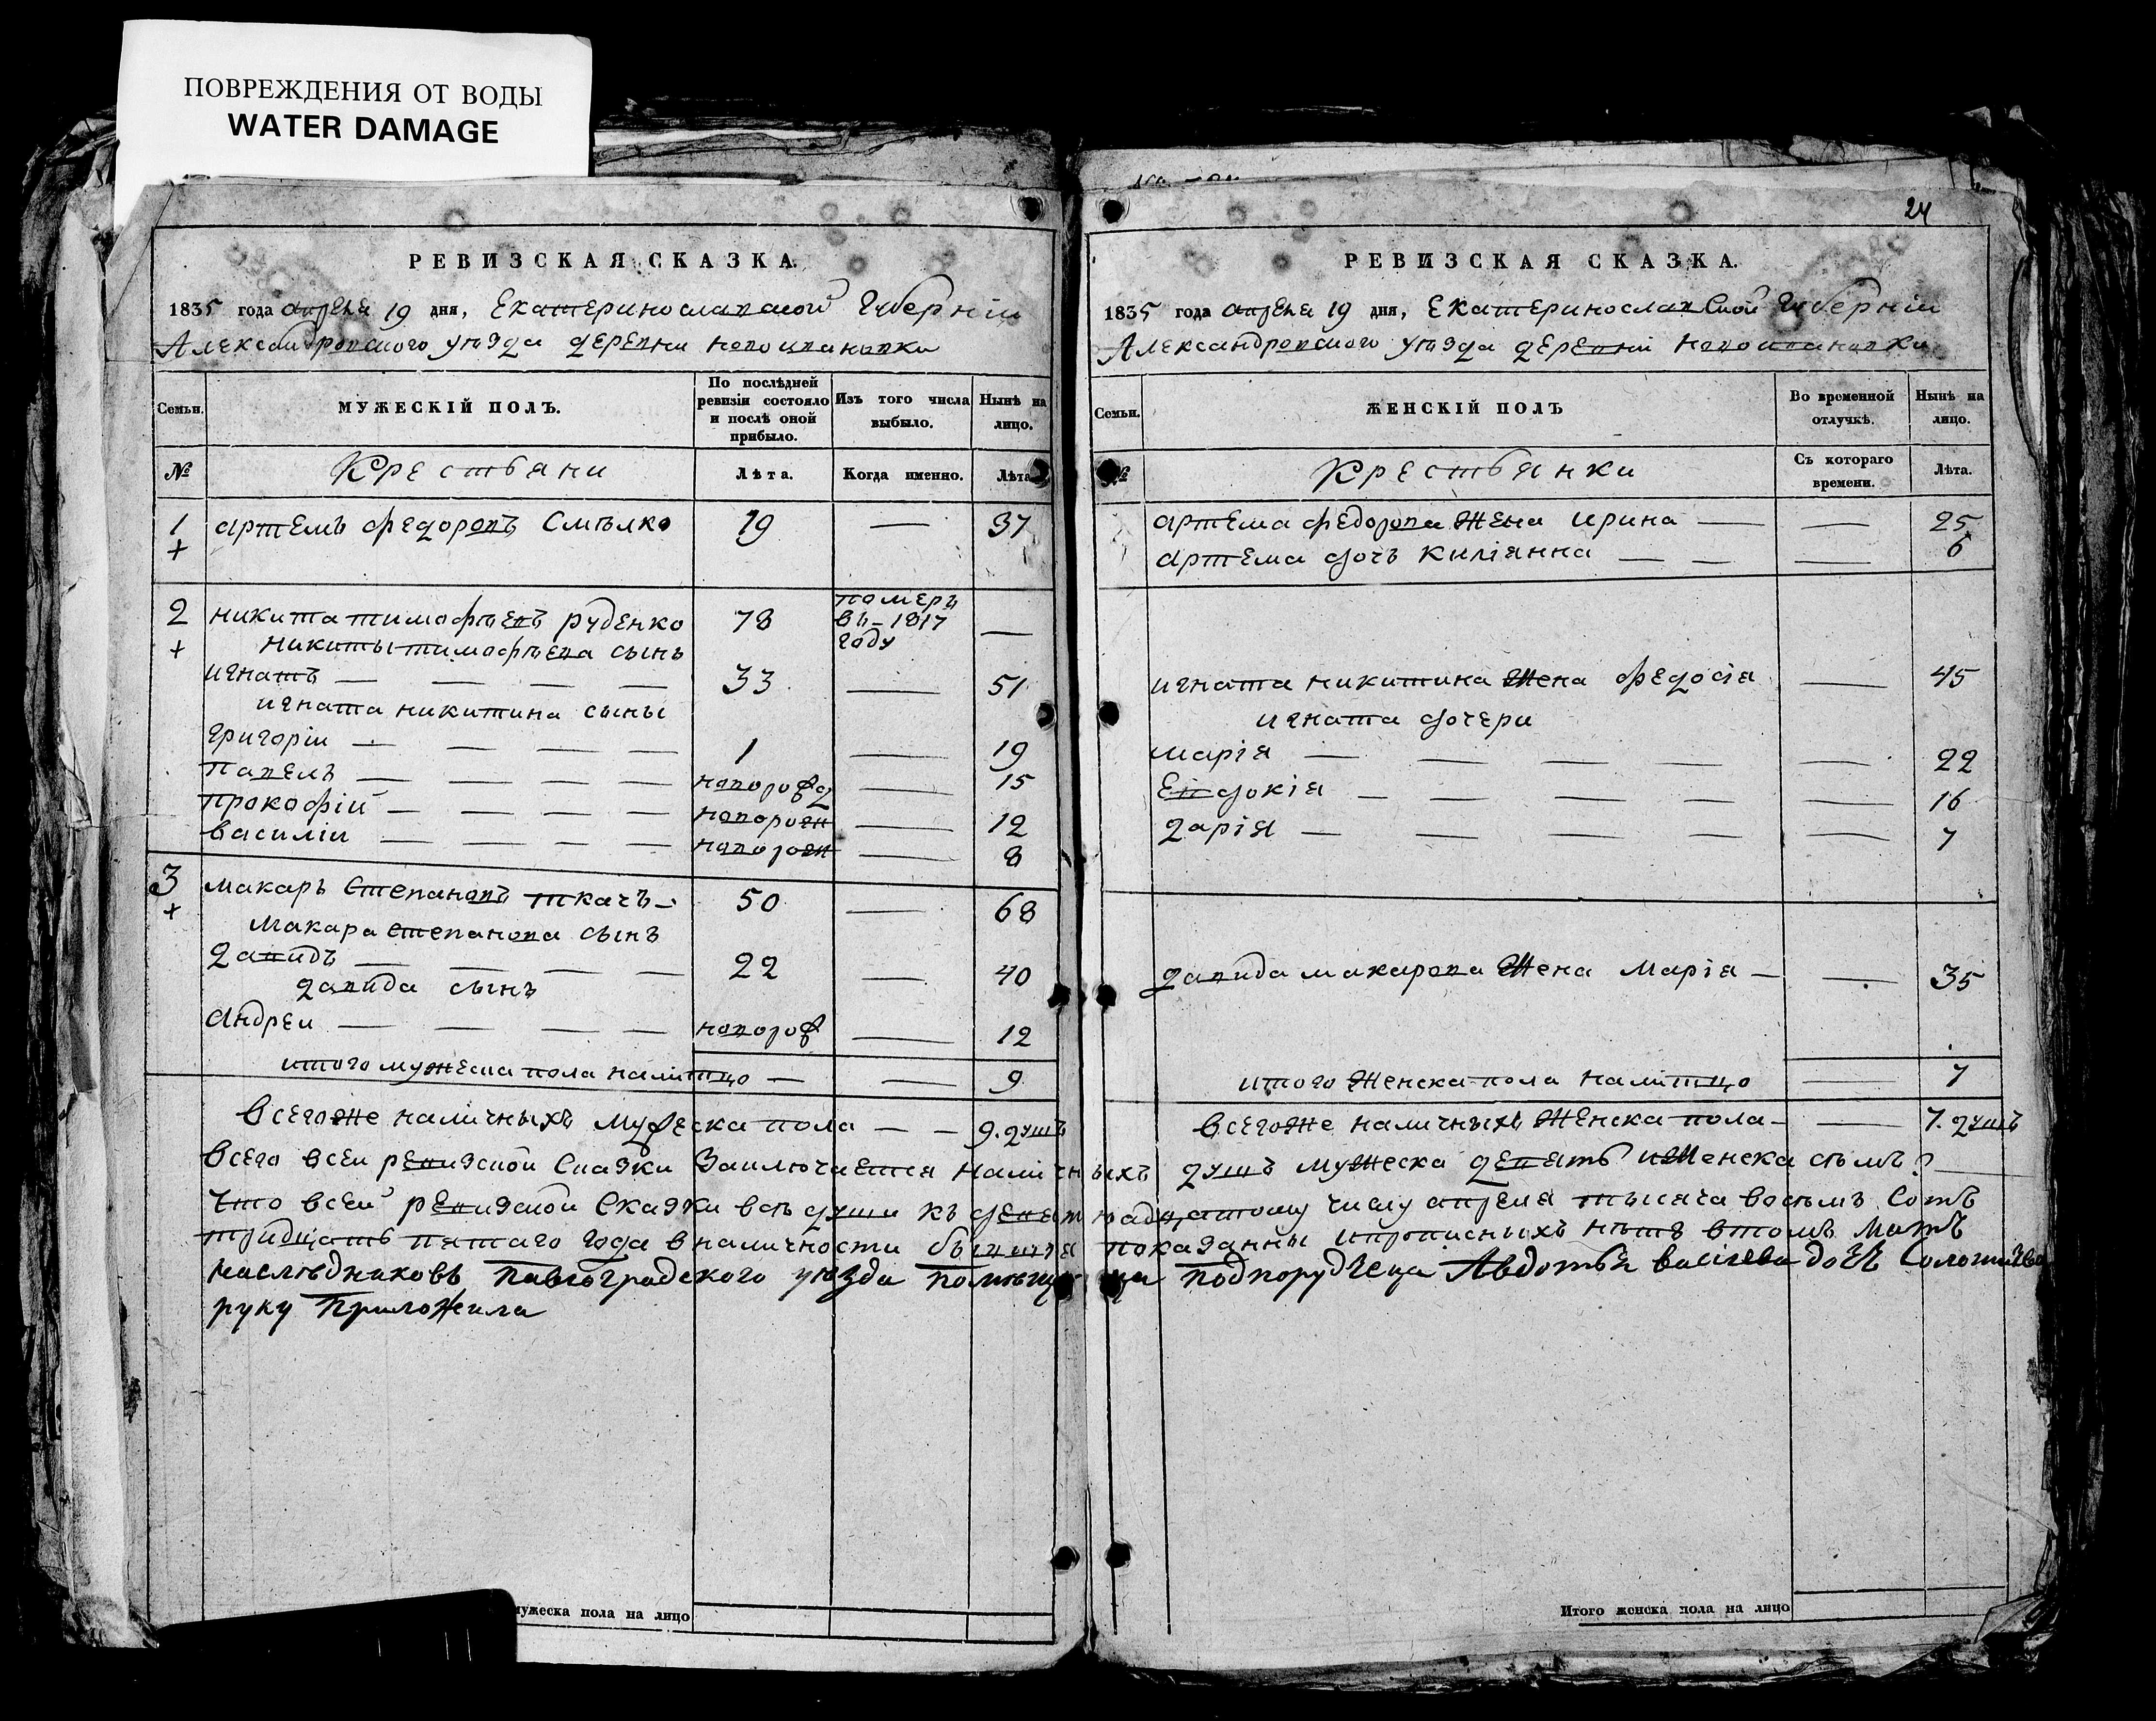 ПОВРЕЖДЕНИЯ ОТ ВОДЫ
WATER DAMAGE
РЕВИЗСКАЯ СКАЗКА.
1835 года апреля 19 дня, Екатеринославской Губерніи
Александровского уѣзда деревни
Семьи.
МУЖЕСКІЙ ПОЛЪ.
По послѣдней ревизіи состояло и послѣ оной прибыло.
Изъ того числа выбыло.
Нынѣ на лицо.
№
Крестьяни
Лѣта.
Когда именно.
Лѣта
1 + Артемъ Федоровъ Смѣлко 19 — 37
2 + Никита Тимофѣевъ Руденко 78 померъ въ-1817 году —
Никиты Тимофѣева сынъ
Игнатъ — — — — 33 — 51
Игната Никитина сыны
Григоріи — — — — 1 — 19
Павелъ — — — — 15
Прокофій — — — — новорож — 12
Василіи — — — — новорож — 8
3 + Макаръ Степановъ Ткачъ — 50 — 68
Макара Степанова сынъ
Давидъ — — — — 22 — 40
Давида сынъ
Андреи — — — — новорож — 12
итого мужеска пола налитцо — — 9
Всегоже наличныхъ мужеска пола — — 9. душъ
24
РЕВИЗСКАЯ СКАЗКА.
1835 года апреля 19 дня, Екатеринославской Губерніи
Александровского уѣзда деревни
Семьи.
ЖЕНСКІЙ ПОЛЪ
Во временной отлучкѣ.
Нынѣ на лицо.
№
Крестьянки
Съ котораго времени.
Лѣта.
Артема Федорова жена Ирина — — 25
Артема дочъ Киліянна — — — 6
Игната Никитина жена Федосія — 45
Игната дочери
Марія — — — — — 22
Евдокія — — — — — 16
Дарія — — — — — 7
Давида Макарова жена Марія — — 35
итого женска пола налитцо — 7
Всегоже наличныхъ женска пола — — 7. душъ
Всего всеи ревизской Сказки Заключается наличныхъ душъ мужеска девять и женска сѣмъ
Что всей ревизской Сказки всѣ души къ девятнадцатому числу апреля тысяча восѣмъ Сотъ
тридцать пятаго года вналичности показанны ипрописныхъ нѣтъ втомъ
наслѣдниковъ Павлоградского уѣзда помѣщица подпорудчица Авдотья Васілева дочь
руку приложила
мужеска пола на лицо
Итого женска пола на лицо